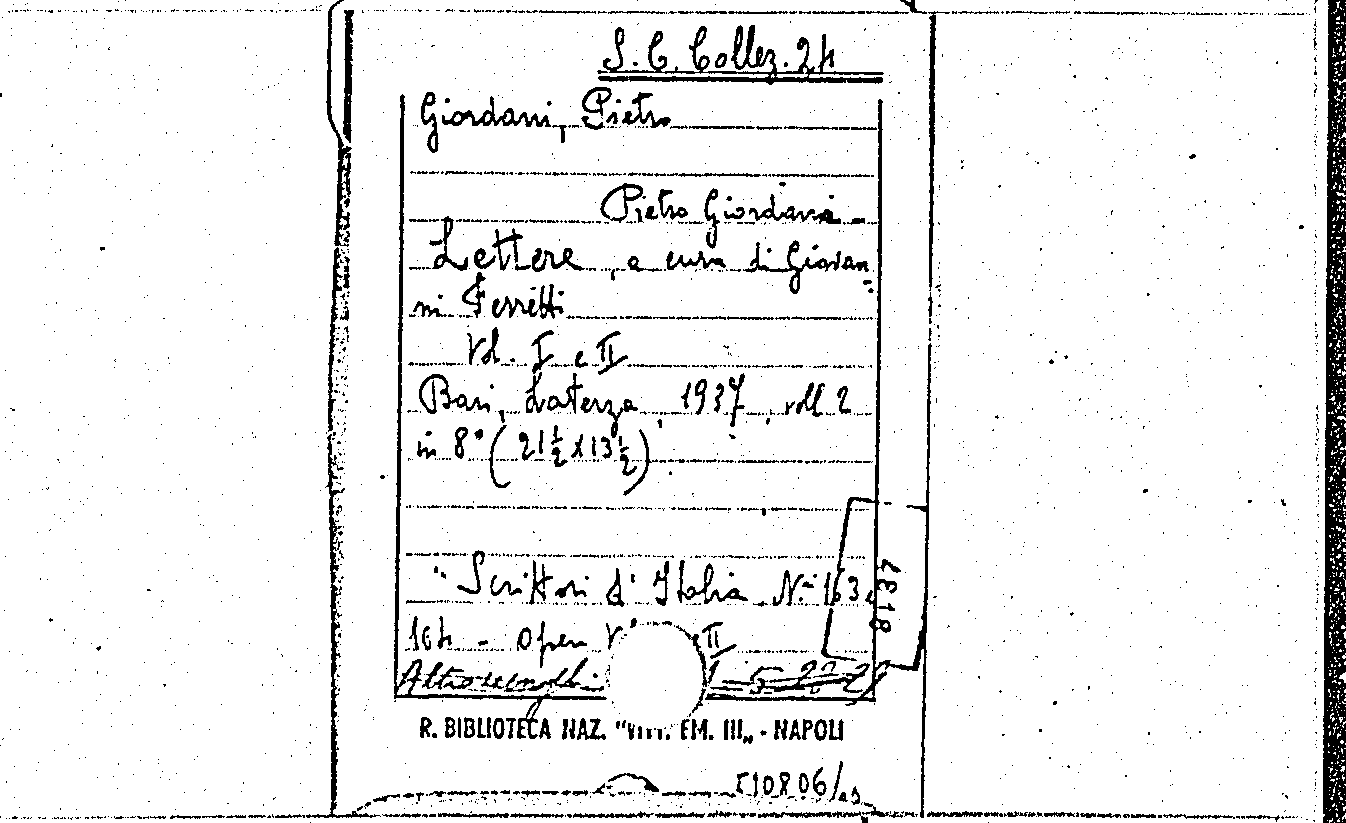 S. C. Collez. 24
Giordani, Pietro
Pietro Giordani -
Lettere, a cura di Giovan=
ni Ferretti
Vol. I e II
Bari, Laterza, 1937, voll 2
in 8° (21½ x 13½)
"Scrittori d'Italia N° 163,
164 - Opere II
R. BIBLIOTECA NAZ. "VITT. EM. III„ - NAPOLI
510806/